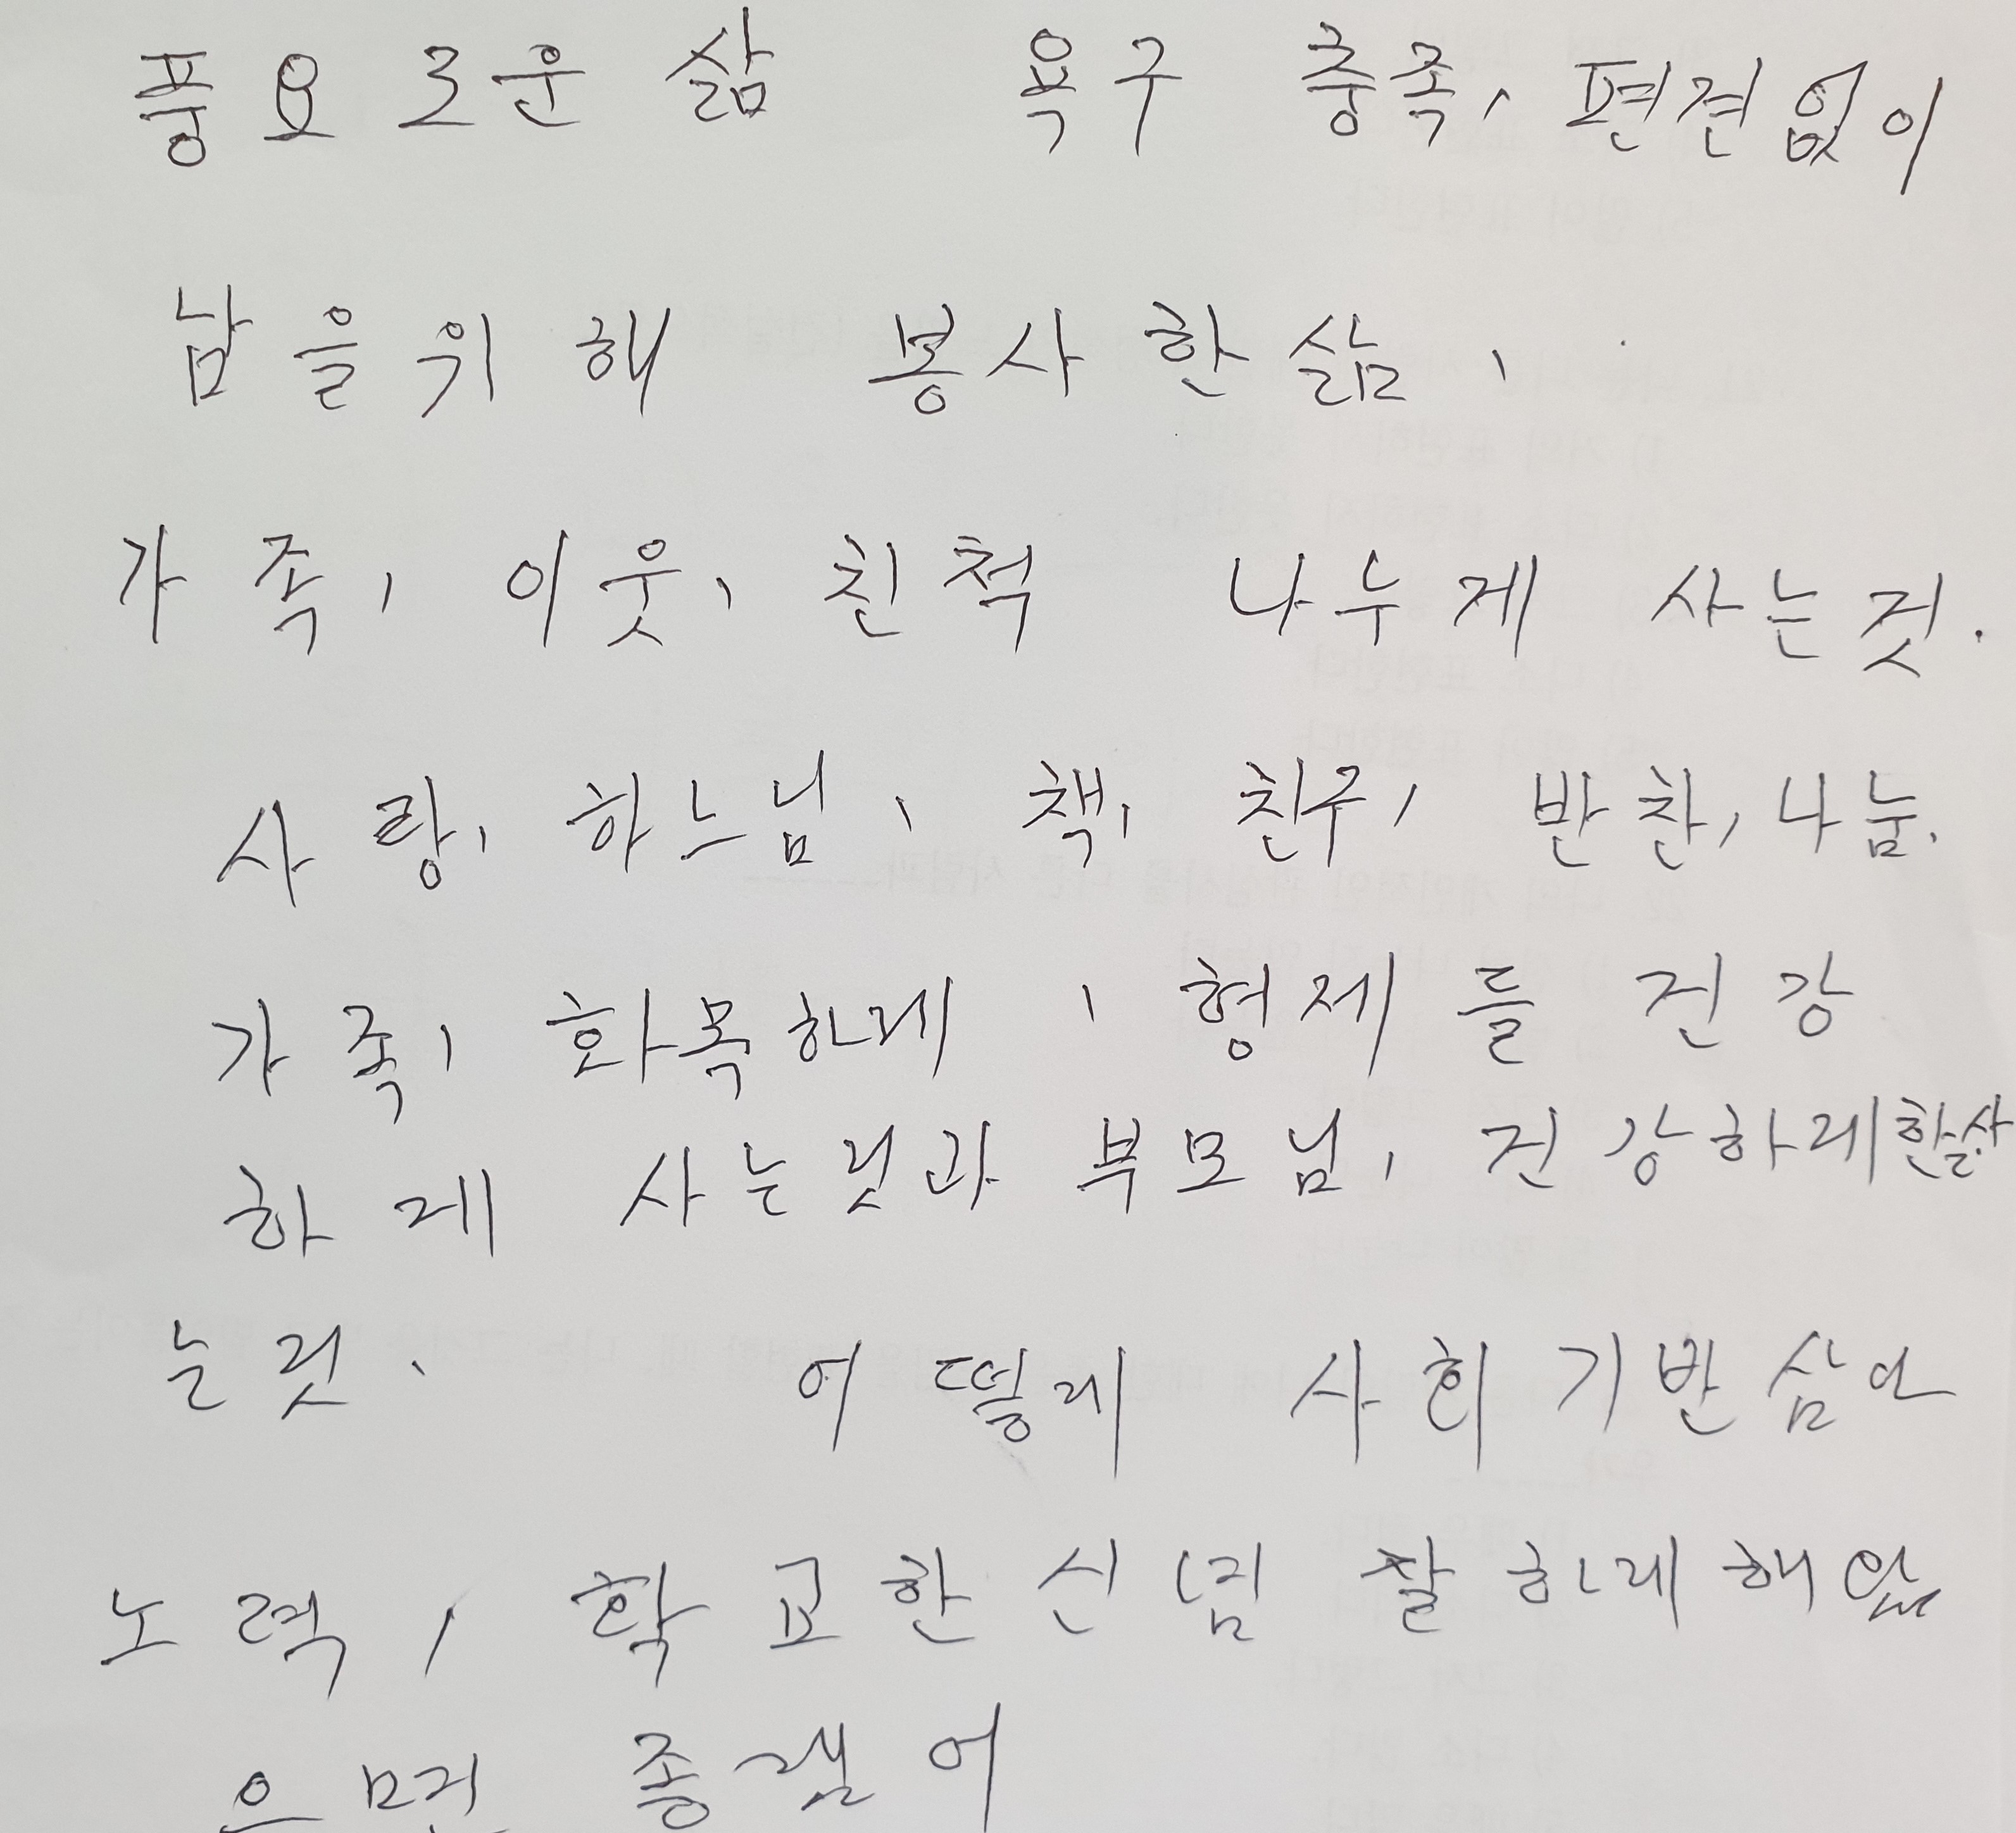 풍요로운 삶 욕구 충족, 편견없이
남을위해 봉사한삶,
가족, 이웃, 친척 나누게 사는것.
사랑, 하느님, 책, 친구, 반찬, 나눔.
가족, 화목하게, 형제들 건강
하게 사는것과 부모님, 건강하게
는것. 어떻게 사회기반삼아
노력, 학교한신념 잘하게해
으면 좋겠어